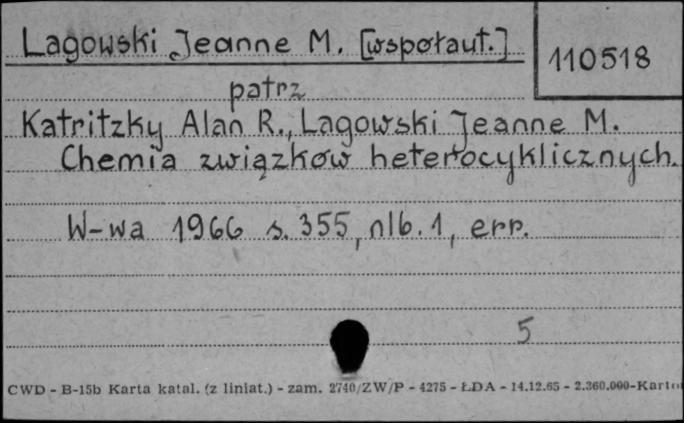 Lagowski Jeanne M. [współaut.]
110518
patrz
Katritzky Alan R., Lagowski Jeanne M.
Chemia związków heterocyklicznych.
W-wa 1966 s. 355, nlb. 1, err.
5
CWD - B-15b Karta katal. (z liniat.) - zam. 2740/ZW/P - 4275 - ŁDA - 14.12.65 - 2.360.000-Karto